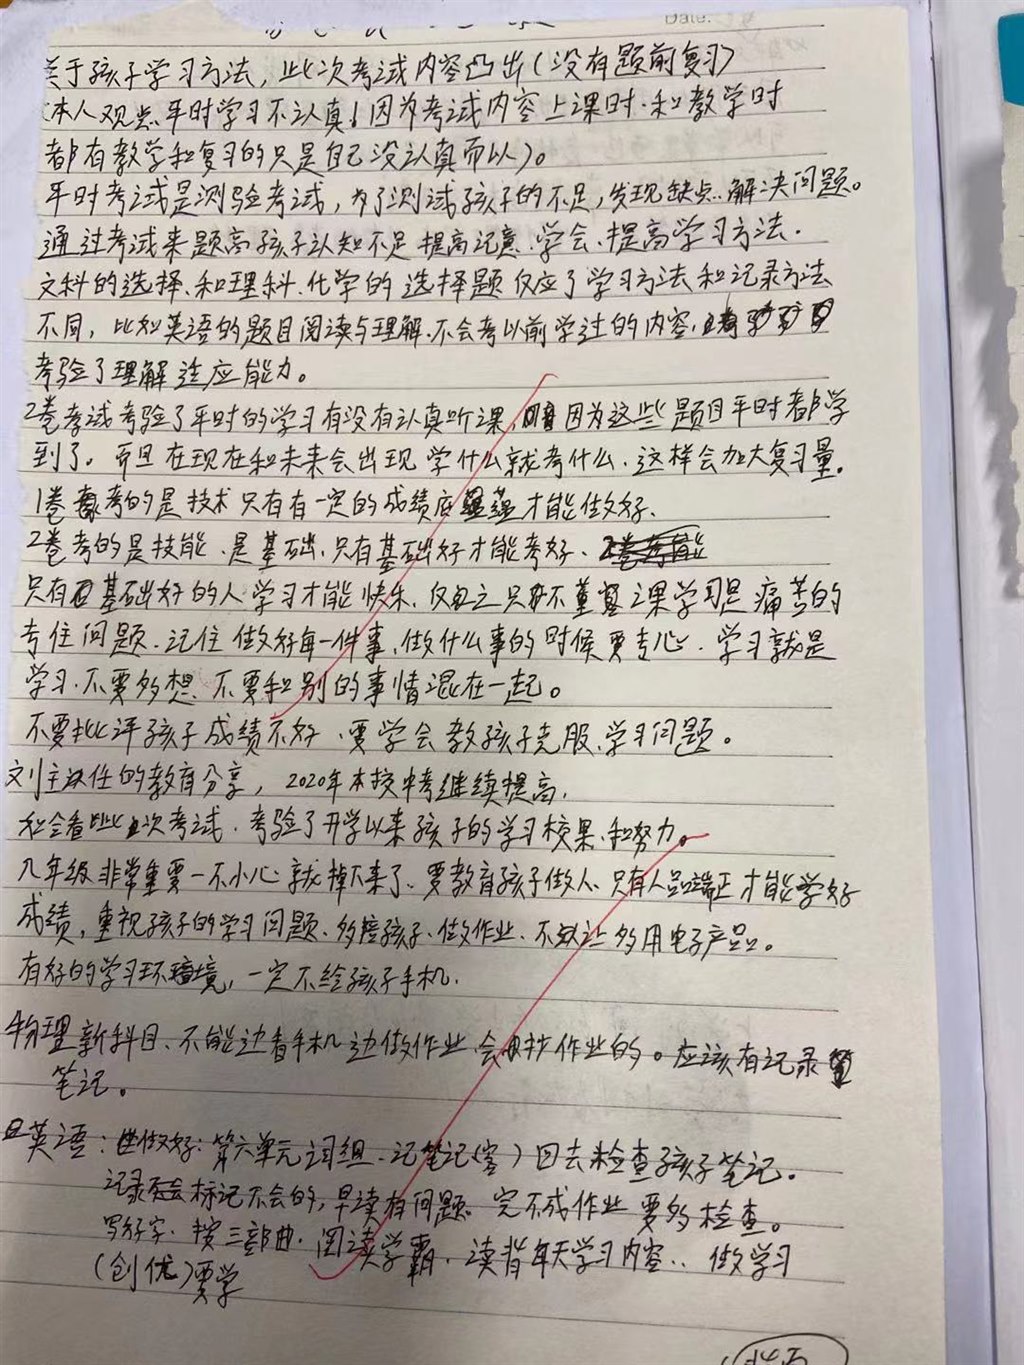 Date:
关于孩子学习方法，此次考试内容凸出（没有题前复习）
（本人观点平时学习不认真！因为考试内容上课时、和教学时
都有教学和复习的只是自己没认真而以）。
平时考试是测验考试，为了测试孩子的不足，发现缺点、解决问题。
通过考试来题高孩子认知不足提高记意、学会、提高学习方法.
文科的选择、和理科、化学的选择题仅应了学习方法和记录方法
不同，比如英语的题目阅读与理解、不会考以前学过的内容、
考验了理解适应能力。
2卷考试考验了平时的学习有没有认真听课，因为这些题目平时都学
到了。而且在现在和未来会出现学什么就考什么、这样会加大复习量。
1卷考的是技术只有有一定的成绩底蕴才能做好、
2卷考的是技能、是基础、只有基础好才能考好、
只有基础好的人学习才能快乐、仅之只不董之课学习是痛苦的
专住问题、记住做好每一件事、做什么事的时候要专心、学习就是
学习、不要多想、不要和别的事情混在一起。
不要批评孩子成绩不好、要学会教孩子克服、学习问题。
刘主任的教育分享，2020年本校中考继续提高，
和会看此次考试、考验了开学以来孩子的学习校果、和努力。
九年级非常重要一不小心就掉下来了、要教育孩子做人、只有人品端正才能学好
成绩，重视孩子的学习问题、多陪孩子、做作业、不让多用电子产品。
有好的学习环境，一定不给孩子手机.
物理新科目、不能边看手机边做作业、会抄作业的。应该有记录
笔记。
英语：做好：第六单元词组、记笔记（写）回去检查孩子笔记。
记录标记不会的，早读有问题、完不成作业要多检查。
写好字、按三部曲、阅读学霸、读背每天学习内容、做学习
（创优）要学